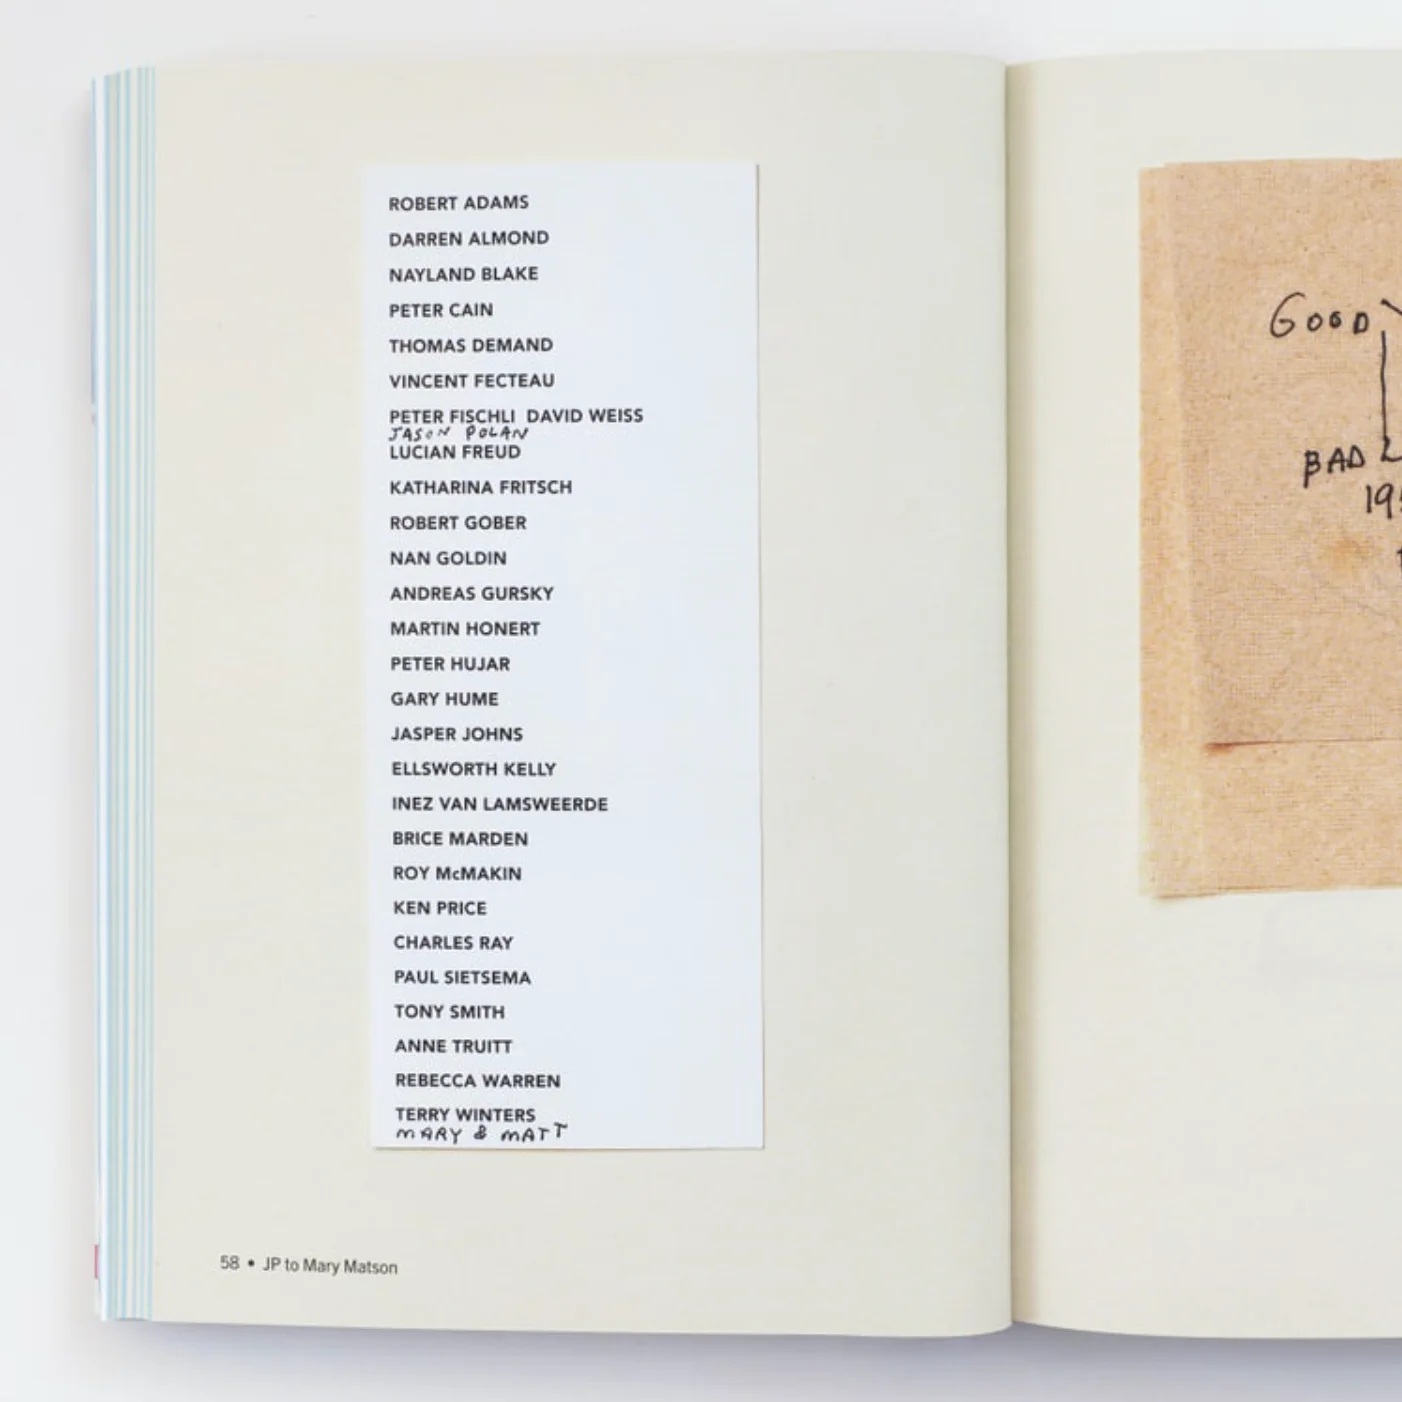 ROBERT ADAMS
DARREN ALMOND
NAYLAND BLAKE
PETER CAIN
THOMAS DEMAND
VINCENT FECTEAU
PETER FISCHLI DAVID WEISS
JASON POLAN
LUCIAN FREUD
KATHARINA FRITSCH
ROBERT GOBER
NAN GOLDIN
ANDREAS GURSKY
MARTIN HONERT
PETER HUJAR
GARY HUME
JASPER JOHNS
ELLSWORTH KELLY
INEZ VAN LAMSWEERDE
BRICE MARDEN
ROY McMAKIN
KEN PRICE
CHARLES RAY
PAUL SIETSEMA
TONY SMITH
ANNE TRUITT
REBECCA WARREN
TERRY WINTERS
MARY & MATT
58 • JP to Mary Matson
GOOD
BAD